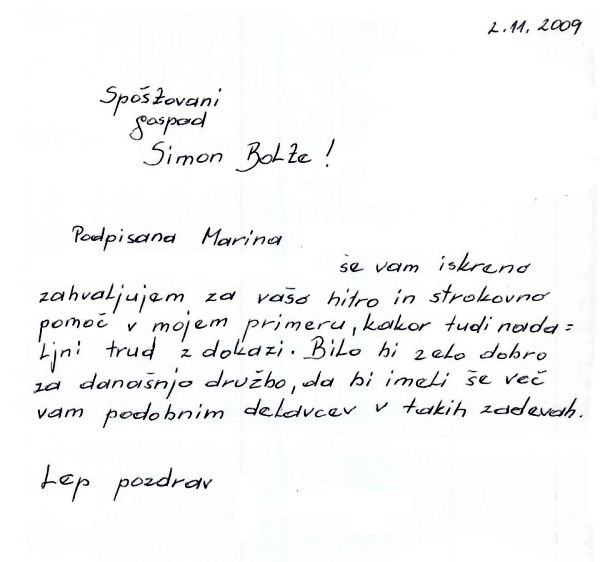 2.11.2009
Spoštovani
gospod
Simon Bolže!
Podpisana Marina
se vam iskreno
zahvaljujem za vašo hitro in strokovno
pomoč v mojem primeru, kakor tudi nada=
ljni trud z dokazi. Bilo bi zelo dobro
za današnjo družbo, da bi imeli še več
vam podobnim delavcev v takih zadevah.
Lep pozdrav